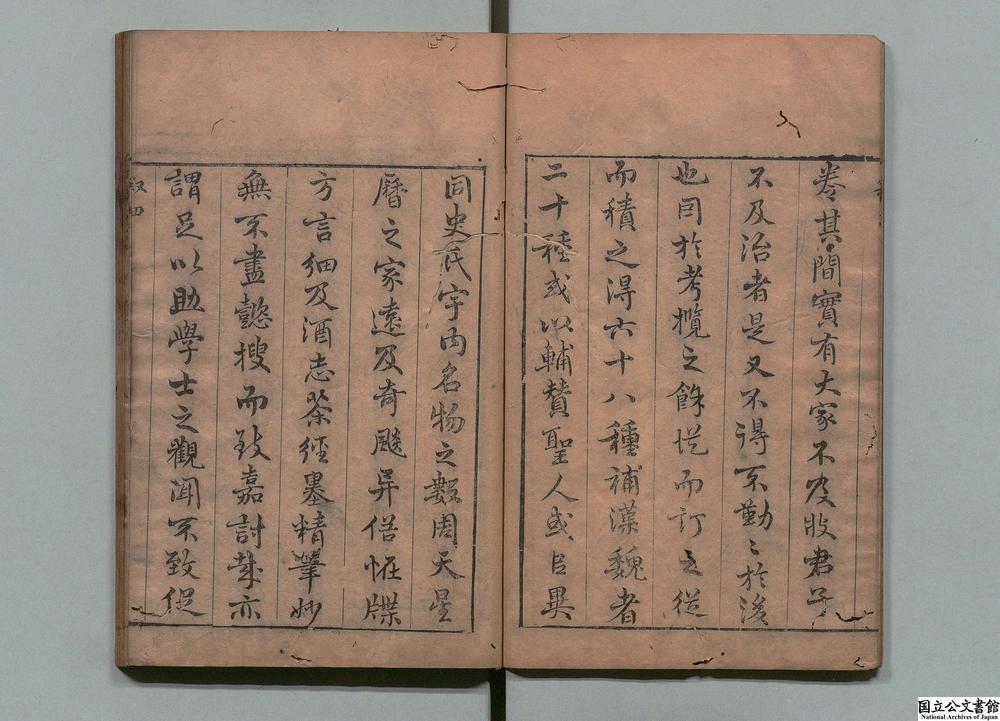 卷其間實有大家不及收君子
不及治者是又不得不勤〻於後
也因於考攬之餘悅而訂之從
而積之得六十八種補漢魏者
二十種或以輔贊聖人或臣異
同史氏宇內名物之數周天星
曆之家遠及奇颷異俗恠牒
方言細及酒志茶經墨精筆妙
無不盡懿搜而致嘉討裁亦
謂足以助學士之觀聞不致促
叙四
国立公文書館
National Archives of Japan